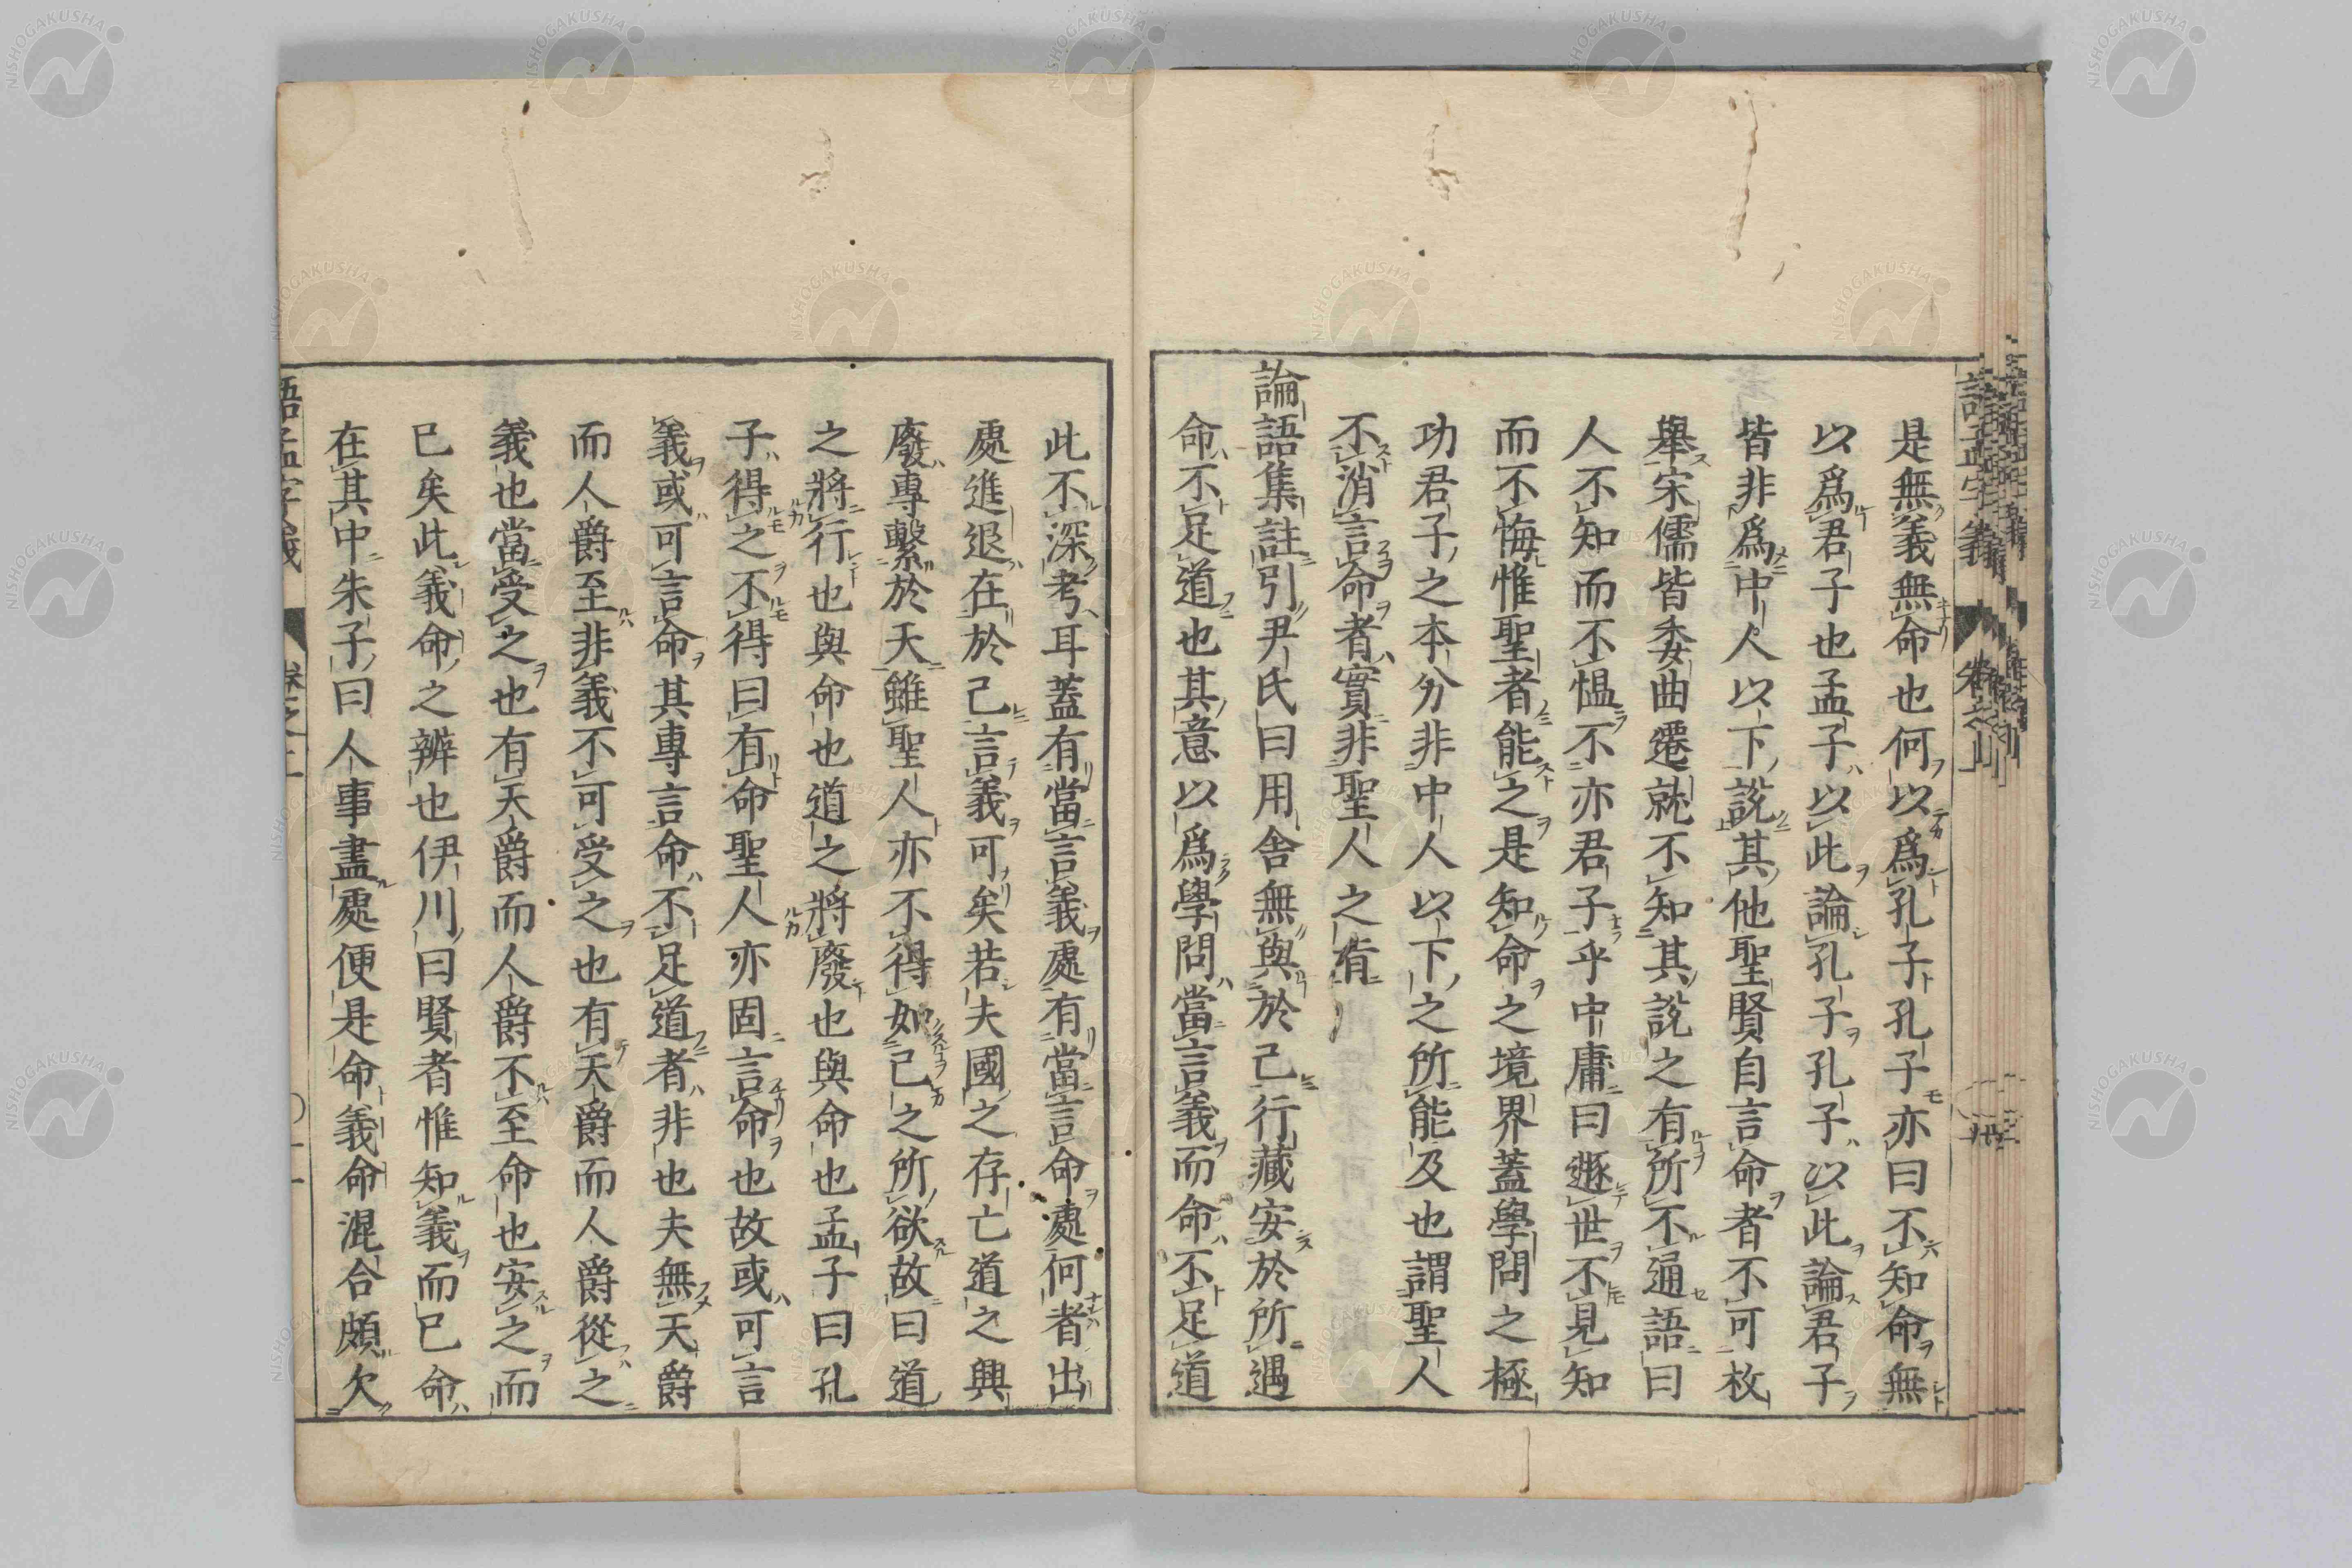 是無義無命也何以爲孔子孔子亦曰不知命無
以爲君子也孟子以此論孔子孔子以此論君子
皆非爲中人以下說其他聖賢自言命者不可枚
舉宋儒皆委曲遷就不知其說之有所不通語曰
人不知而不慍不亦君子乎中庸曰遯世不見知
而不悔惟聖者能之是知命之境界蓋學問之極
功君子之本分非中人以下之所能及也謂聖人
不消言命者實非聖人之旨
論語集註引尹氏曰用舍無與於己行藏安於所遇
命不足道也其意以爲學問當言義而命不足道
此不深考耳蓋有當言義處有當言命處何者出
處進退在於己言義可矣若夫國之存亡道之興
廢專繫於天雖聖人亦不得如己之所欲故曰道
之將行也與命也道之將廢也與命也孟子曰孔
子得之不得曰有命聖人亦固言命也故或可言
義或可言命其專言命不足道者非也夫無天爵
而人爵至非義不可受之也有天爵而人爵從之
義也當受之也有天爵而人爵不至命也安之而
已矣此義命之辨也伊川曰賢者惟知義而已命
在其中朱子曰人事盡處便是命義命混合頗欠
語孟字義 卷之上
NISHOGAKUSHA